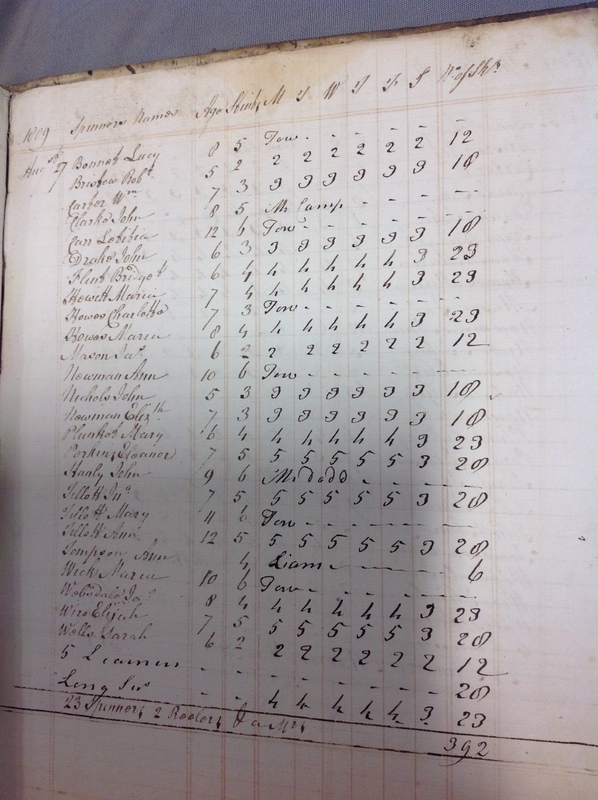 1809 Spinners Names Age Stint M T W T F S No of Sks
Augst 27 Bennet Lucy 8 5 Tow - - - - -
Bristow Robt 5 2 2 2 2 2 2 2 12
Carter Wm 7 3 3 3 3 3 3 3 18
Clarke John 8 5 Mr Camp - - - -
Carr Letitia 12 6 Tow - - - - -
Drake John 6 3 3 3 3 3 3 3 18
Flint Bridget 6 4 4 4 4 4 4 3 23
Howett Maria 7 4 4 4 4 4 4 3 23
Howes Charlotte 7 3 Tow - - - - -
Howes Maria 8 4 4 4 4 4 4 3 23
Mason Jas 6 2 2 2 2 2 2 2 12
Newman Ann 10 6 Tow - - - - -
Nichols John 5 3 3 3 3 3 3 3 18
Newman Elizth 7 3 3 3 3 3 3 3 18
Plunket Mary 6 4 4 4 4 4 4 3 23
Perkins Eleanor 7 5 5 5 5 5 5 3 28
John 9 6 Mr dodd - - - -
Tillott Jno 7 5 5 5 5 5 5 3 28
Tillott Mary 4 6 Tow - - - - -
Tillott Ann 12 5 5 5 5 5 5 3 28
Tompson Ann 4 - - - - 6
Wick Maria 10 6 Tow - - - - -
Jas 8 4 4 4 4 4 4 3 23
Wire Elijah 7 5 5 5 5 5 5 3 28
Wells Sarah 6 2 2 2 2 2 2 2 12
5 Learners - - - - - - - - 28
Long Jno - - 4 4 4 4 4 3 23
23 Spinners 2 Reelers & a Mrs
392